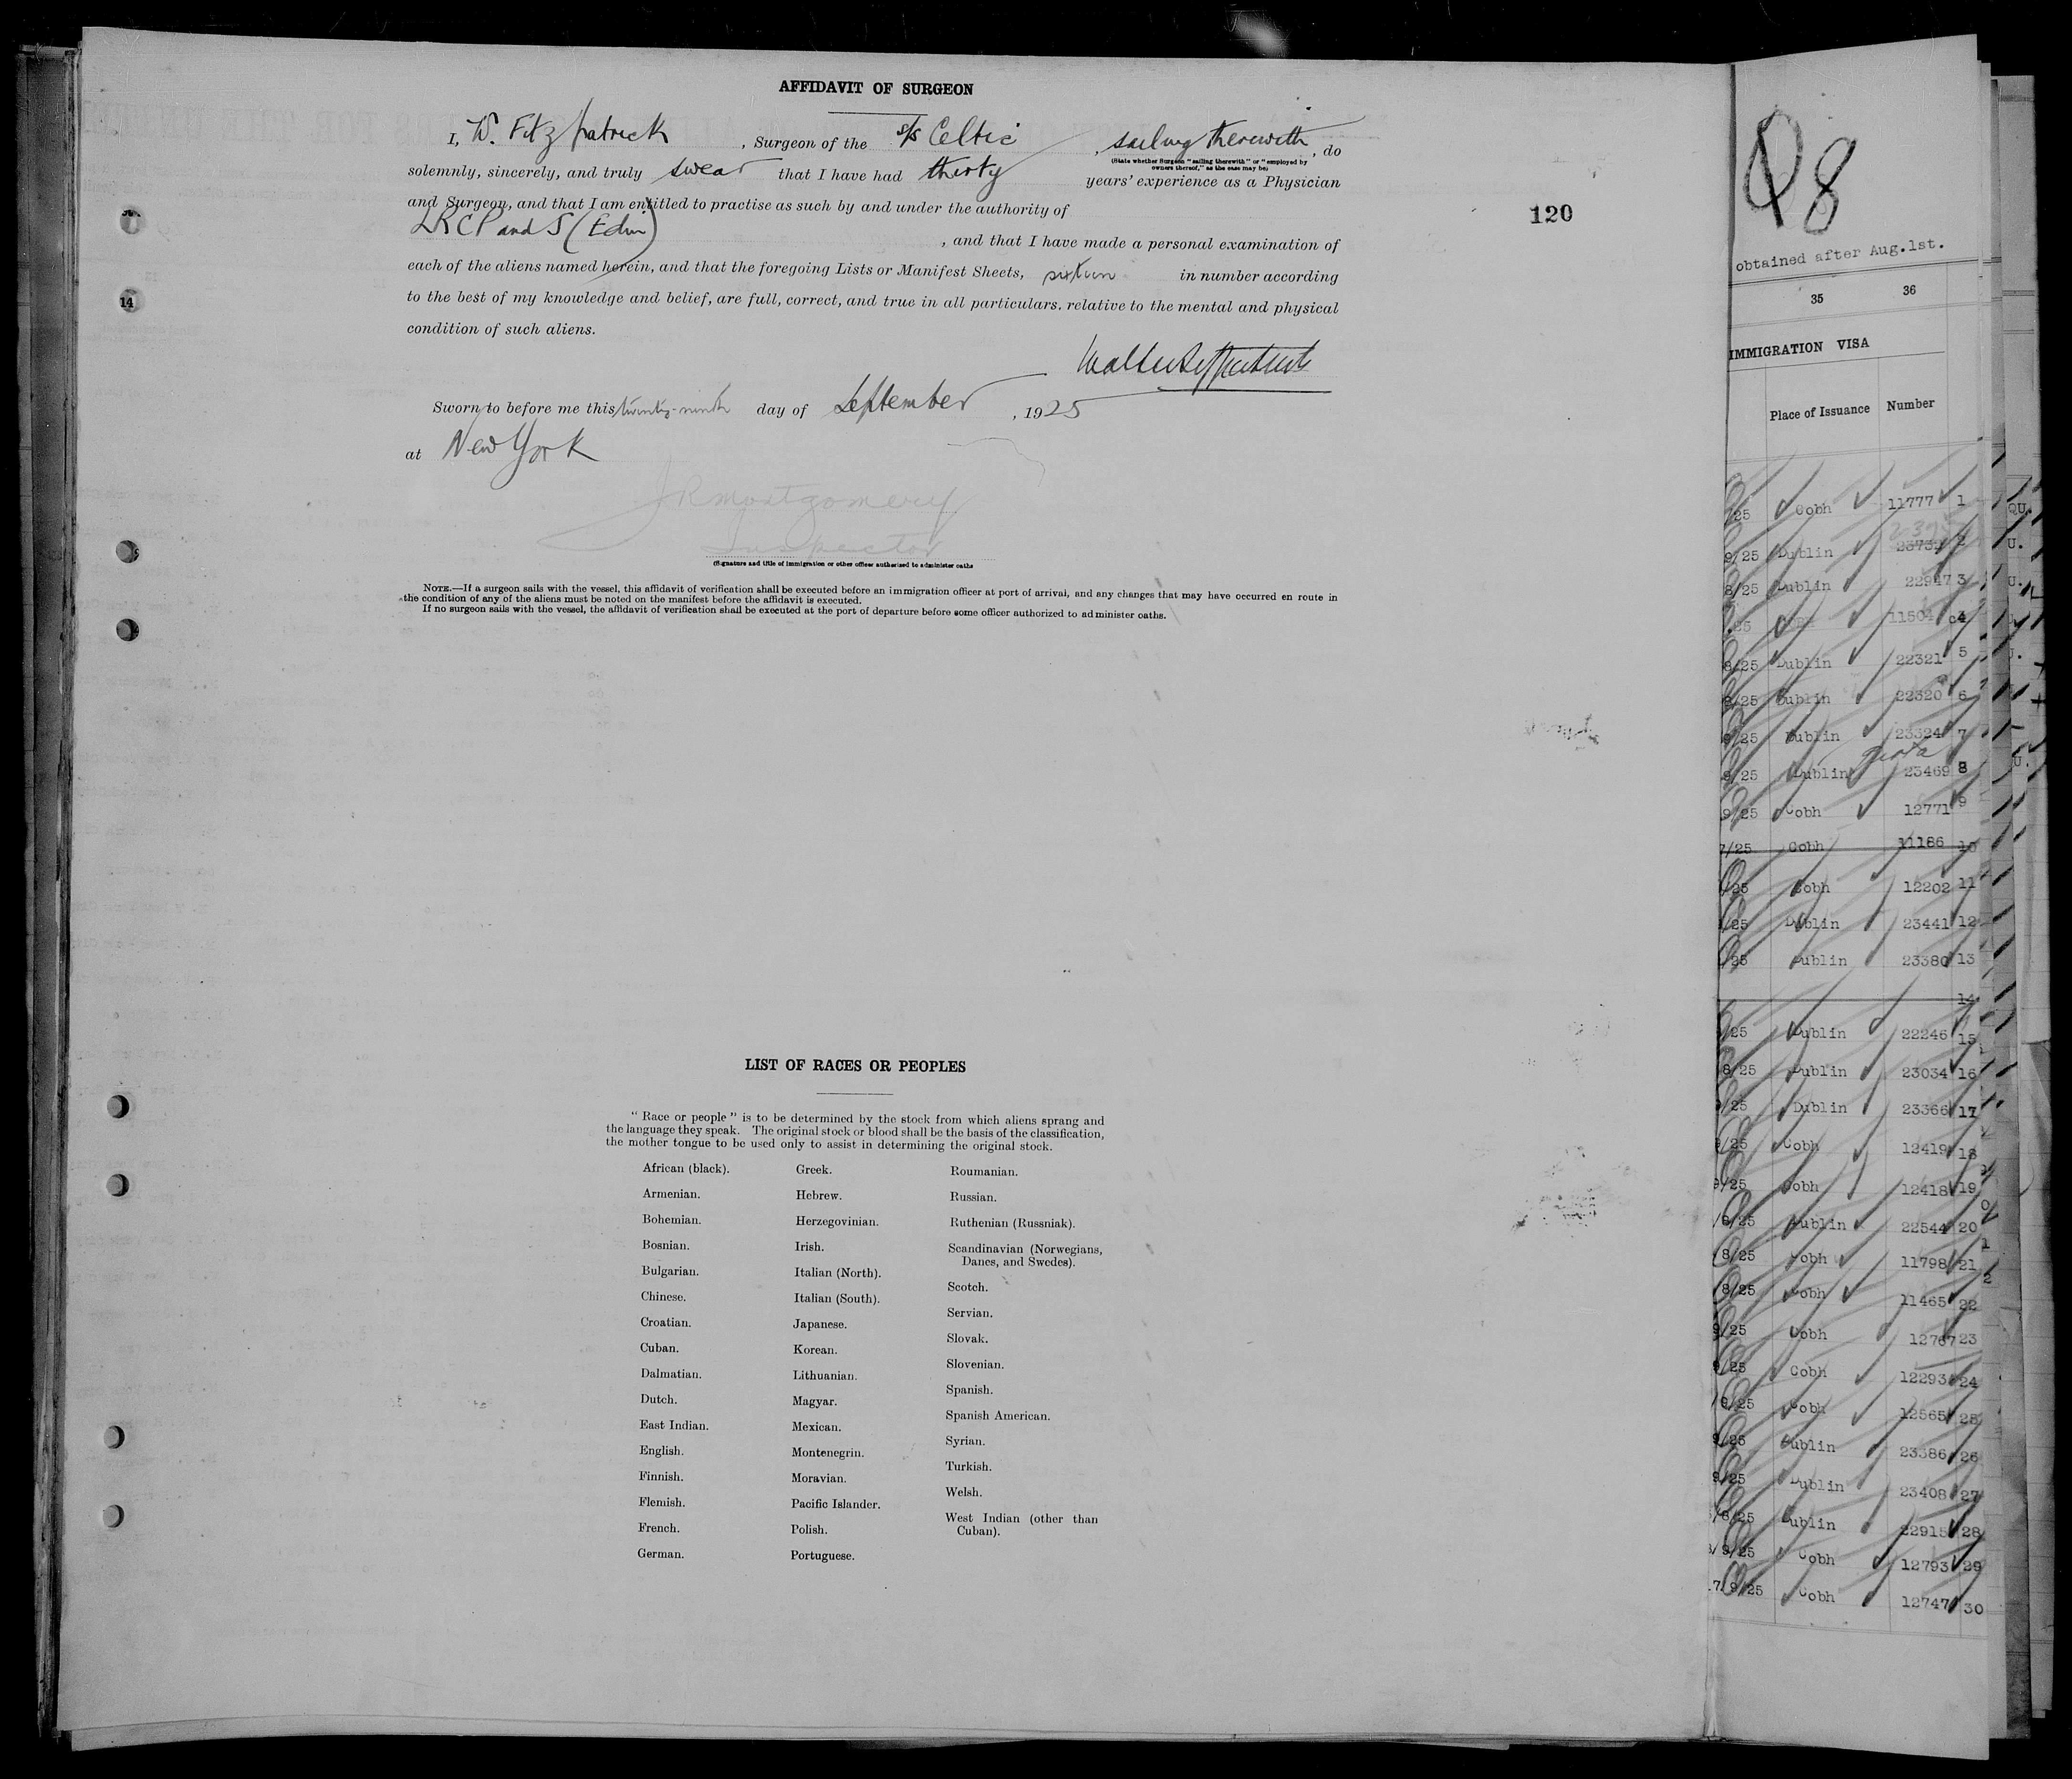 AFFIDAVIT OF SURGEON
I, W. Fitzpatrick, Surgeon of the s/s Celtic, sailing therewith, do
(State whether Surgeon "sailing therewith" or "employed by
owners thereof," as the case may be)
solemnly, sincerely, and truly swear that I have had thirty years' experience as a Physician
and Surgeon, and that I am entitled to practise as such by and under the authority of
LRCP and S (Edin)
, and that I have made a personal examination of
each of the aliens named herein, and that the foregoing Lists or Manifest Sheets, sixteen in number according
to the best of my knowledge and belief, are full, correct, and true in all particulars, relative to the mental and physical
condition of such aliens.
Sworn to before me this twenty-ninth day of September, 1925
at New York
J R Montgomery
Inspector
(Signature and title of immigration or other officer authorized to administer oaths
NOTE.—If a surgeon sails with the vessel, this affidavit of verification shall be executed before an immigration officer at port of arrival, and any changes that may have occurred en route in
the condition of any of the aliens must be noted on the manifest before the affidavit is executed.
If no surgeon sails with the vessel, the affidavit of verification shall be executed at the port of departure before some officer authorized to administer oaths.
120
14
LIST OF RACES OR PEOPLES
"Race or people" is to be determined by the stock from which aliens sprang and
the language they speak. The original stock or blood shall be the basis of the classification,
the mother tongue to be used only to assist in determining the original stock.
African (black).
Armenian.
Bohemian.
Bosnian.
Bulgarian.
Chinese.
Croatian.
Cuban.
Dalmatian.
Dutch.
East Indian.
English.
Finnish.
Flemish.
French.
German.
Greek.
Hebrew.
Herzegovinian.
Irish.
Italian (North).
Italian (South).
Japanese.
Korean.
Lithuanian.
Magyar.
Mexican.
Montenegrin.
Moravian.
Pacific Islander.
Polish.
Portuguese.
Roumanian.
Russian.
Ruthenian (Russniak).
Scandinavian (Norwegians,
Danes, and Swedes).
Scotch.
Servian.
Slovak.
Slovenian.
Spanish.
Spanish American.
Syrian.
Turkish.
Welsh.
West Indian (other than
Cuban).
98
obtained after Aug.1st.
35 36
IMMIGRATION VISA
Place of Issuance Number
/25 Cobh 11777 1
9/25 Dublin 2
8/25 Dublin 22947 3
11504 4
8/25 Dublin 22321 5
9/25 Dublin 22320 6
9/25 Dublin 23324 7
quota
9/25 Dublin 23469 8
9/25 Cobh 12771 9
7/25 Cobh 11186 10
/25 Cobh 12202 11
/25 Dublin 23441 12
/25 Dublin 23380 13
14
/25 Dublin 22246 15
8/25 Dublin 23034 16
/25 Dublin 23366 17
9/25 Cobh 12419 18
9/25 Cobh 12418 19
/8/25 Dublin 22544 20
8/25 Cobh 11798 21
8/25 Cobh 11465 22
9/25 Cobh 12767 23
9/25 Cobh 12293 24
/9/25 Cobh 12565 25
9/25 Dublin 23386 26
9/25 Dublin 23408 27
/8/25 Dublin 22915 28
/9/25 Cobh 12793 29
17/9/25 Cobh 12747 30
QU.
U.
U.
U.
U.